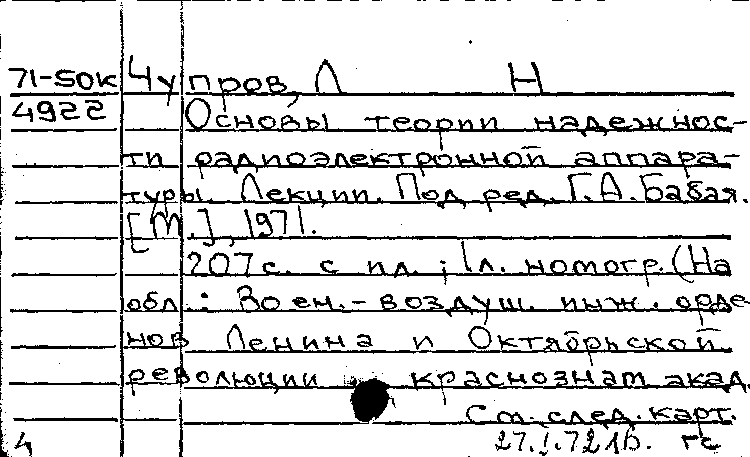 71-50к Чупров, Л Н
4922 Основы теории надежнос-
ти радиоэлектронной аппара-
туры. Лекции. Под ред. Г.А. Бабая.
[М.], 1971.
207 с. с ил.; 1 л. номогр. (На
обл.: Воен.-воздуш. инж. орде
нов Ленина и Октябрьской
революции краснознам акад.
См. след. карт.
4 27.I.72 гс